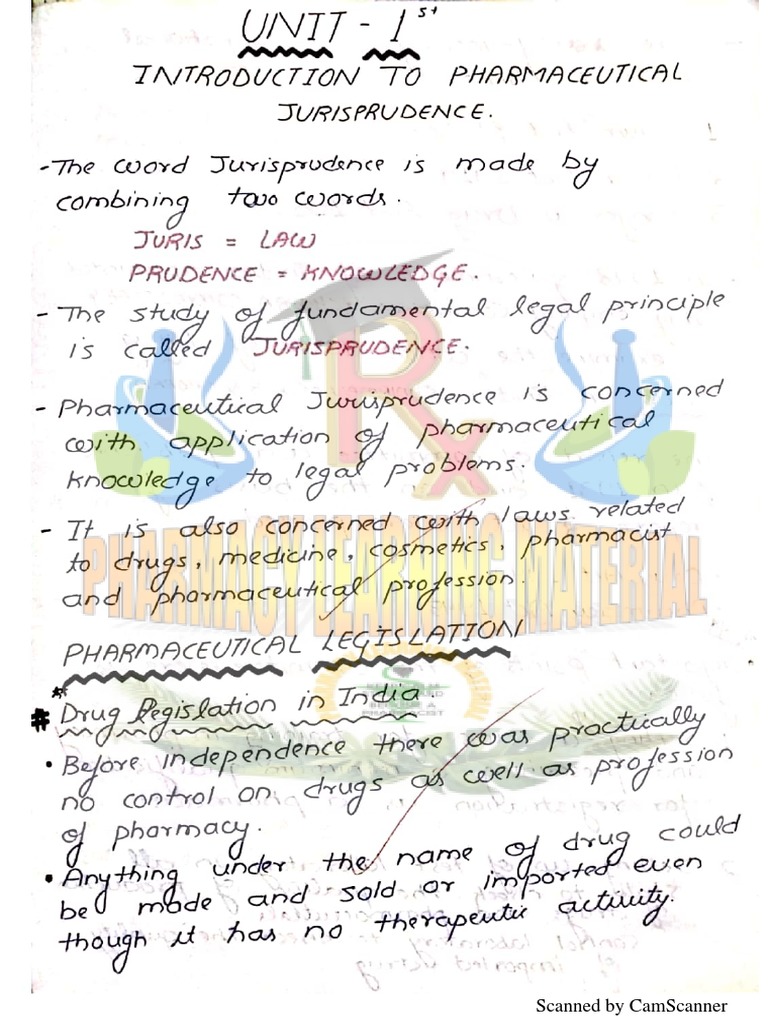 UNIT - 1st
INTRODUCTION TO PHARMACEUTICAL
JURISPRUDENCE.
- The word Jurisprudence is made by
combining two words.
JURIS = LAW
PRUDENCE = KNOWLEDGE.
- The study of fundamental legal principle
is called JURISPRUDENCE.
- Pharmaceutical Jurisprudence is concerned
with application of pharmaceutical
knowledge to legal problems.
- It is also concerned with laws related
to drugs, medicine, cosmetics, pharmacist
and pharmaceutical profession.
PHARMACY LEARNING MATERIAL
PHARMACEUTICAL LEGISLATION
# Drug Legislation in India.
• Before independence there was practically
no control on drugs as well as profession
of pharmacy.
• Anything under the name of drug could
be made and sold or imported even
though it has no therapeutic activity.
Scanned by CamScanner